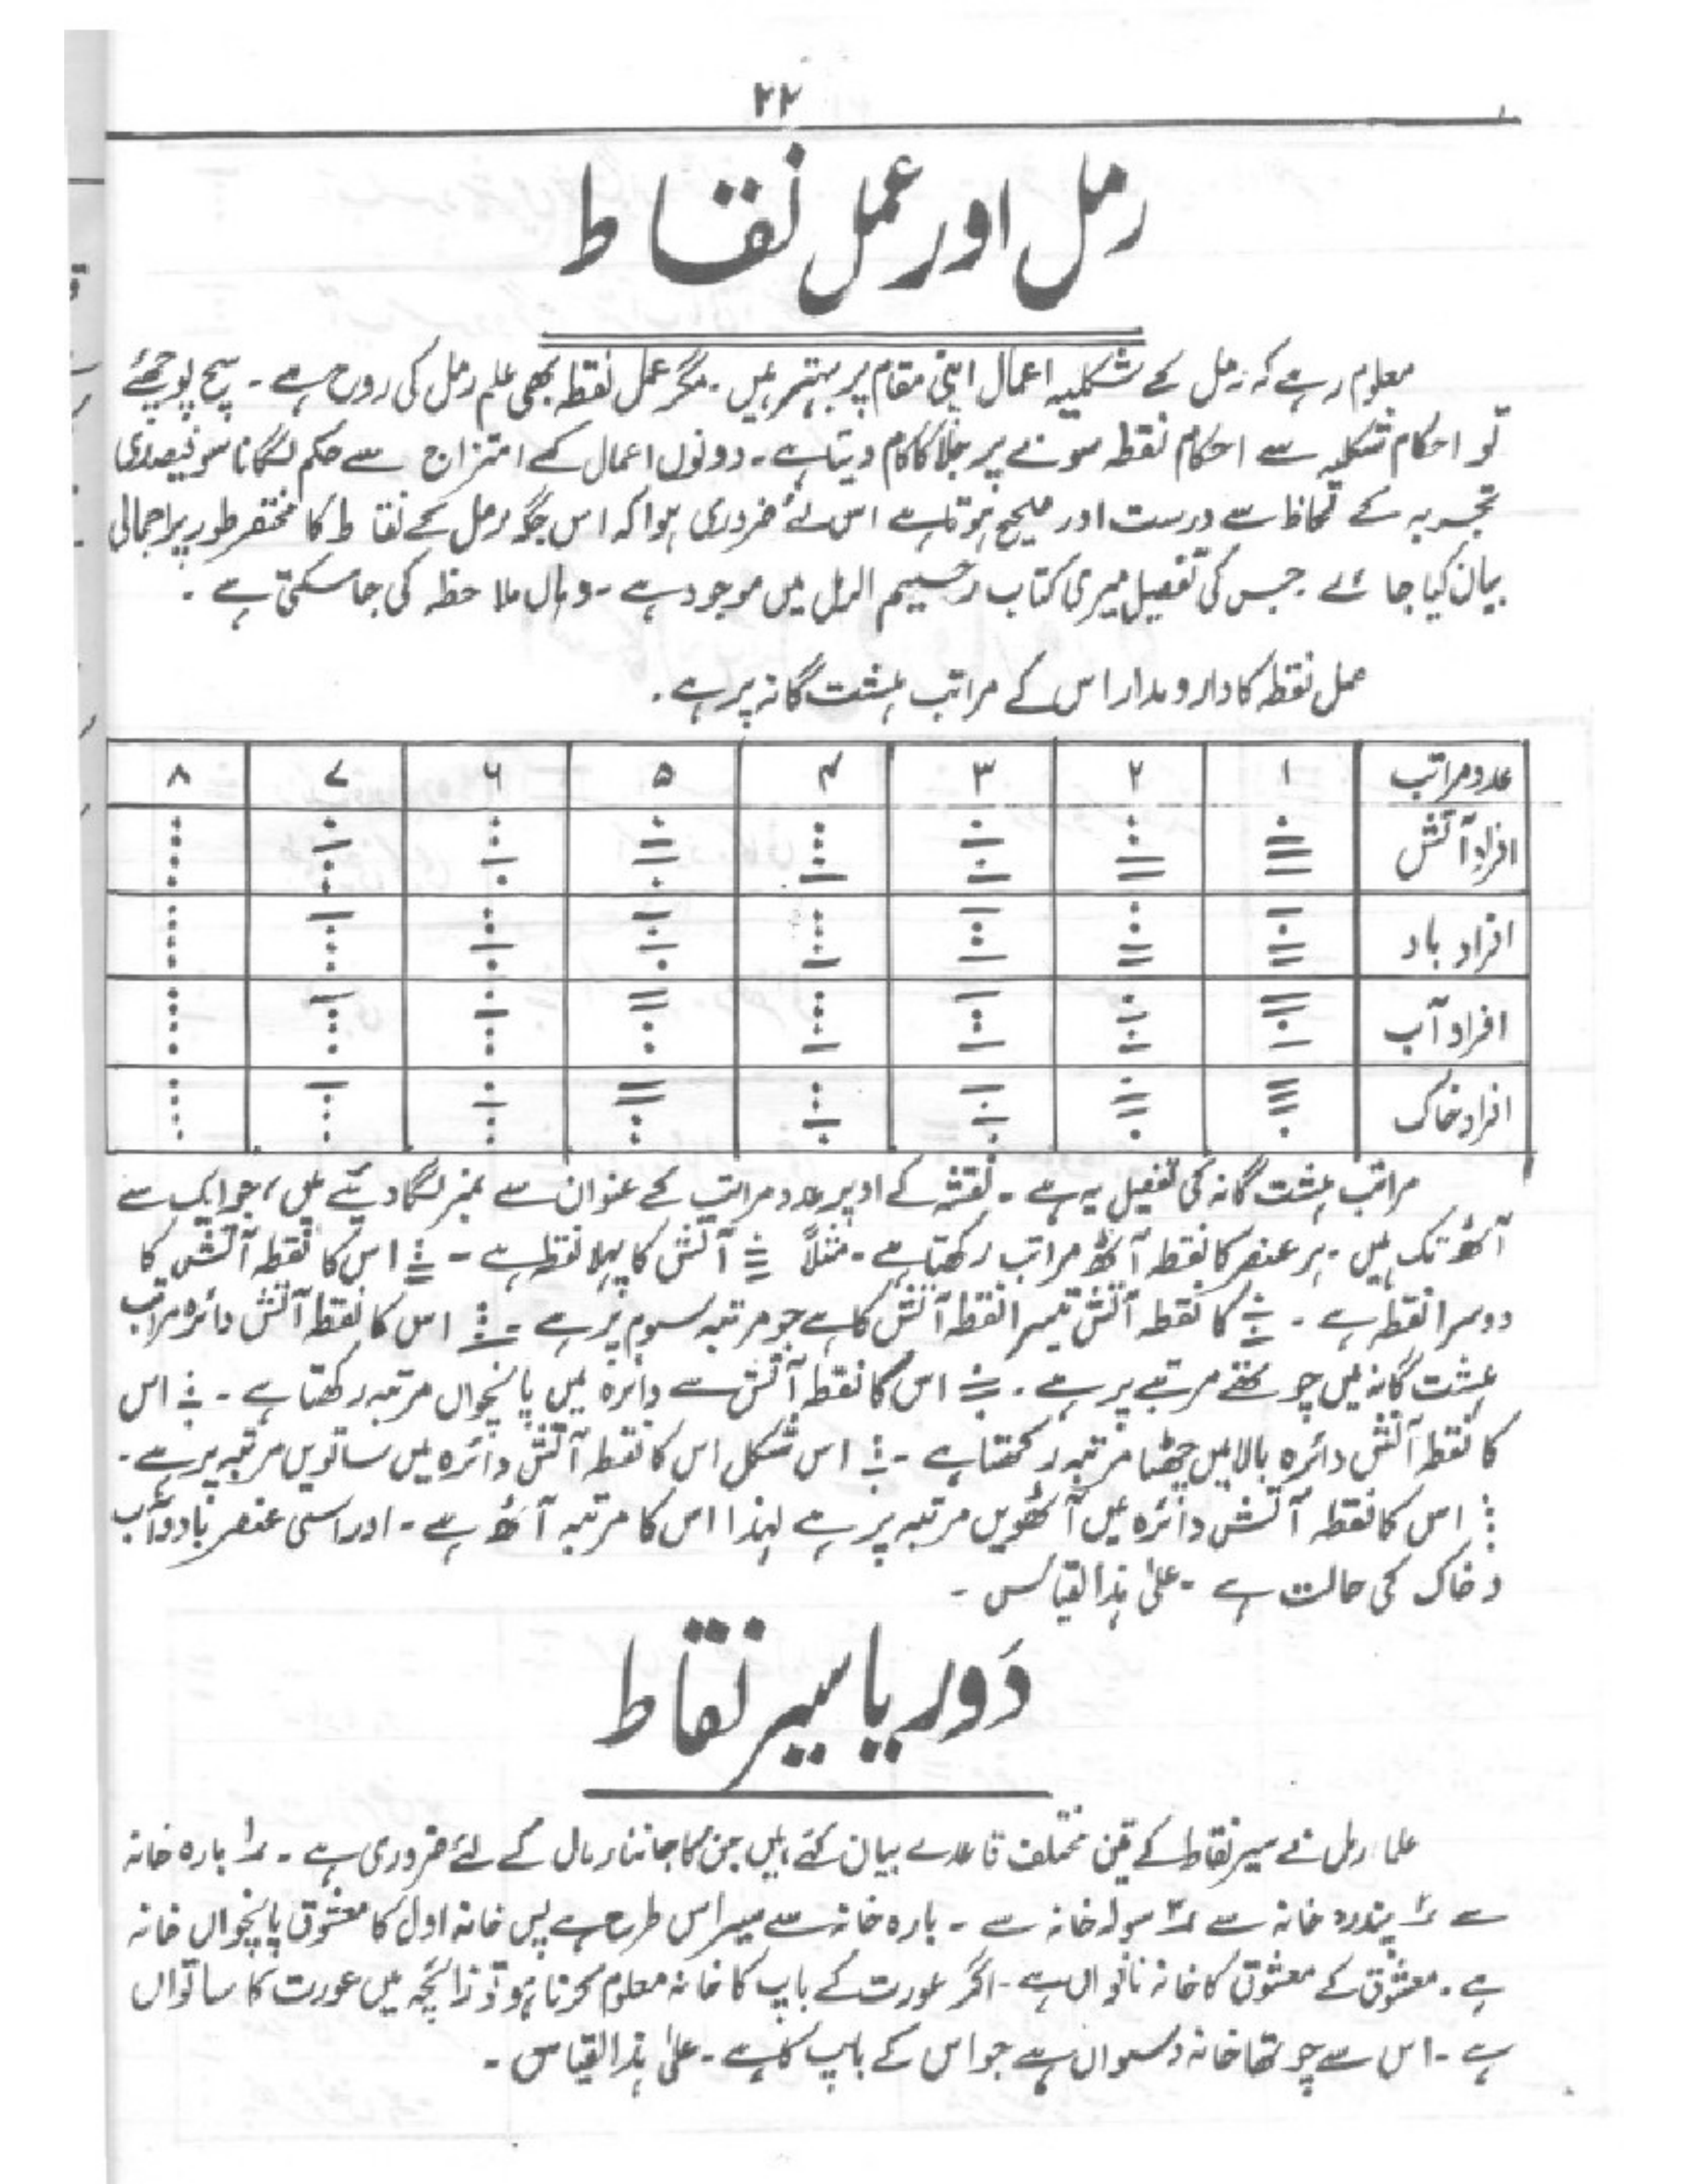 ۲۲
رمل اور عمل نقاط
معلوم رہے کہ رمل کے شکلیہ اعمال اپنی مقام پر بہتر ہیں ۔ مگر عمل نقطہ بھی علم رمل کی روح ہے ۔ سچ پوچھئے
تو احکام شکلیہ سے احکام نقطہ سونے پر جلا کا کام دیتا ہے ۔ دونوں اعمال کے امتزاج سے حکم لگانا سو فیصدی
تجربہ کے لحاظ سے درست اور صحیح ہوتا ہے اس لئے ضروری ہوا کہ اس جگہ رمل کے نقاط کا مختصر طور پر اجمالی
بیان کیا جائے ۔ جس کی تفصیل میری کتاب رحیم الرمل میں موجود ہے ۔ وہاں ملاحظہ کی جا سکتی ہے ۔
عمل نقطہ کا دارومدار اس کے مراتب ہشت گانہ پر ہے ۔
عدد مراتب ۱ ۲ ۳ ۴ ۵ ۶ ۷ ۸
افراد آتش
افراد باد
افراد آب
افراد خاک
مراتب ہشت گانہ کی تفصیل یہ ہے ۔ نقشہ کے اوپر عدد مراتب کے عنوان سے نمبر لگا دیئے ہیں ، جو ایک سے
آٹھ تک ہیں ۔ ہر عنصر کا نقطہ آٹھ مراتب رکھتا ہے ۔ مثلاً آتش کا پہلا نقطہ ہے ۔ اس کا نقطہ آتش کا
دوسرا نقطہ ہے ۔ کا نقطہ آتش تیسرا نقطہ آتش کا ہے جو مرتبہ سوم پر ہے ۔ اس کا نقطہ آتش دائرہ مراتب
ہشت گانہ میں چوتھے مرتبے پر ہے ۔ اس کا نقطہ آتش سے دائرہ میں پانچواں مرتبہ رکھتا ہے ۔ اس
کا نقطہ آتش دائرہ بالا میں چھٹا مرتبہ رکھتا ہے ۔ اس شکل اس کا نقطہ آتش دائرہ میں ساتویں مرتبہ پر ہے ۔
اس کا نقطہ آتش دائرہ میں آٹھویں مرتبہ پر ہے لہذا اس کا مرتبہ آٹھ ہے ۔ اور اسی عنصر باد و آب
و خاک کی حالت ہے ۔ علیٰ ہذا القیاس ۔
دَور یا سیر نقاط
علماء رمل نے سیر نقاط کے تین مختلف قاعدے بیان کئے ہیں جن کا جاننا رمال کے لئے ضروری ہے ۔ ۱؎ بارہ خانہ
سے ۲؎ پندرہ خانہ سے ۳؎ سولہ خانہ سے ۔ بارہ خانہ سے سیر اس طرح ہے پس خانہ اول کا معشوق پانچواں خانہ
ہے ۔ معشوق کے معشوق کا خانہ نانواں ہے ۔ اگر عورت کے باپ کا خانہ معلوم کرنا ہو تو زائچہ میں عورت کا ساتواں
ہے ۔ اس سے چوتھا خانہ دسواں ہے جو اس کے باپ کا ہے ۔ علیٰ ہذا القیاس ۔